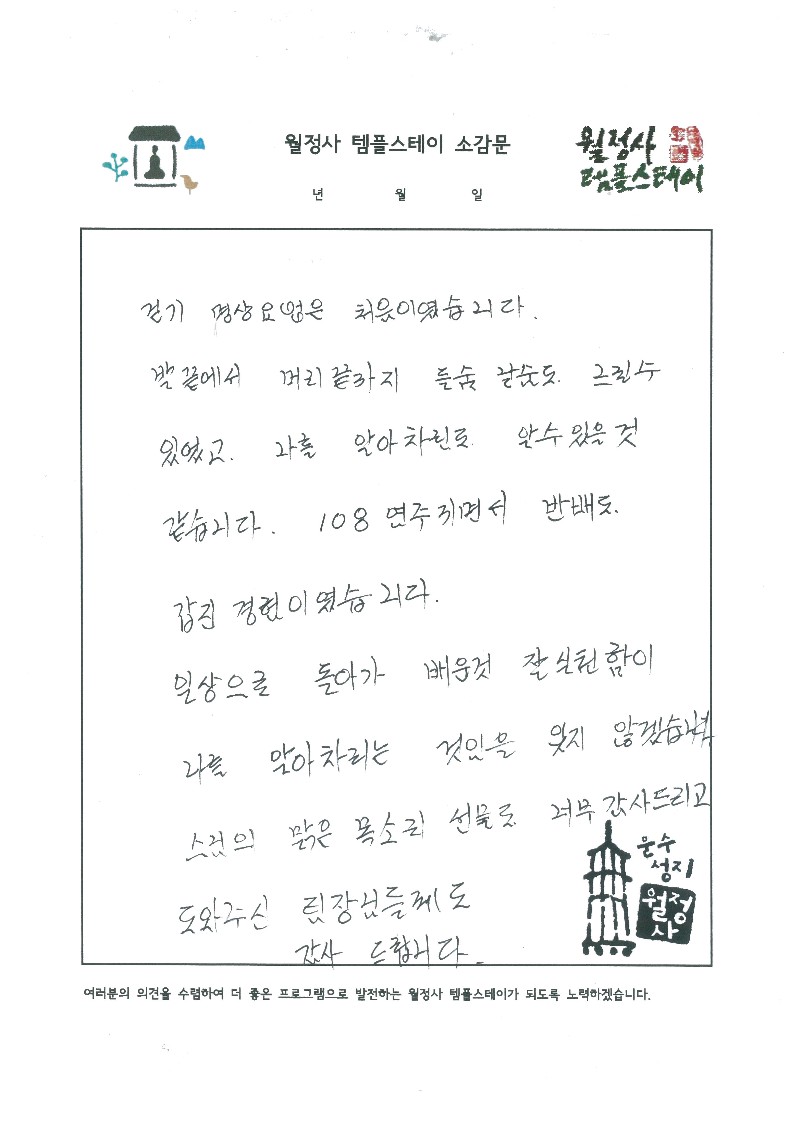 월정사 템플스테이 소감문
월정사
템플스테이
년 월 일
걷기 명상요법은 처음이였습니다.
발끝에서 머리끝까지 들숨 날숨도 느낄수
있었고. 나를 알아차린도 알수있을것
같습니다. 108 연주 반배도.
값진 경험이였습니다.
일상으로 돌아가 배운것 잘 실천함이
나를 알아차리는 것임을 잊지 않겠습니다
스님의 맑은 목소리 선물도 너무 감사드리고
도와주신 팀장님들께도
감사 드립니다.
문수
성지
월정
사
여러분의 의견을 수렴하여 더 좋은 프로그램으로 발전하는 월정사 템플스테이가 되도록 노력하겠습니다.